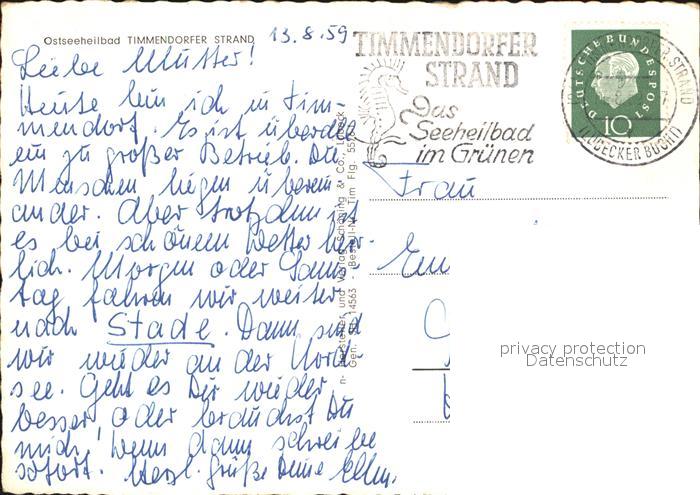 Ostseeheilbad TIMMENDORFER STRAND
13.8.59
Liebe Mutter!
Heute bin ich in Tim-
mendorf. Es ist überall
ein zu großer Betrieb. Die
Menschen liegen überein-
ander. Aber trotzdem ist
es bei schönem Wetter herr-
lich. Morgen oder Sonn-
tag fahren wir weiter
nach Stade. Dann sind
wir wieder an der Nord-
see. Geht es Dir wieder
besser, oder brauchst Du
mich, wenn dann schreibe
sofort. Herzl. Grüße Deine Ellen.
TIMMENDORFER
STRAND
Das
Seeheilbad
im Grünen
DEUTSCHE BUNDESPOST
10
TIMMENDORFER STRAND
(LÜBECKER BUCHT)
Hersteller und Verlag Schöning & Co., Lübeck
Gen. Nr. 14563 - Bestell-Nr. Tim Flg. 557
Frau
Em
privacy protection
Datenschutz